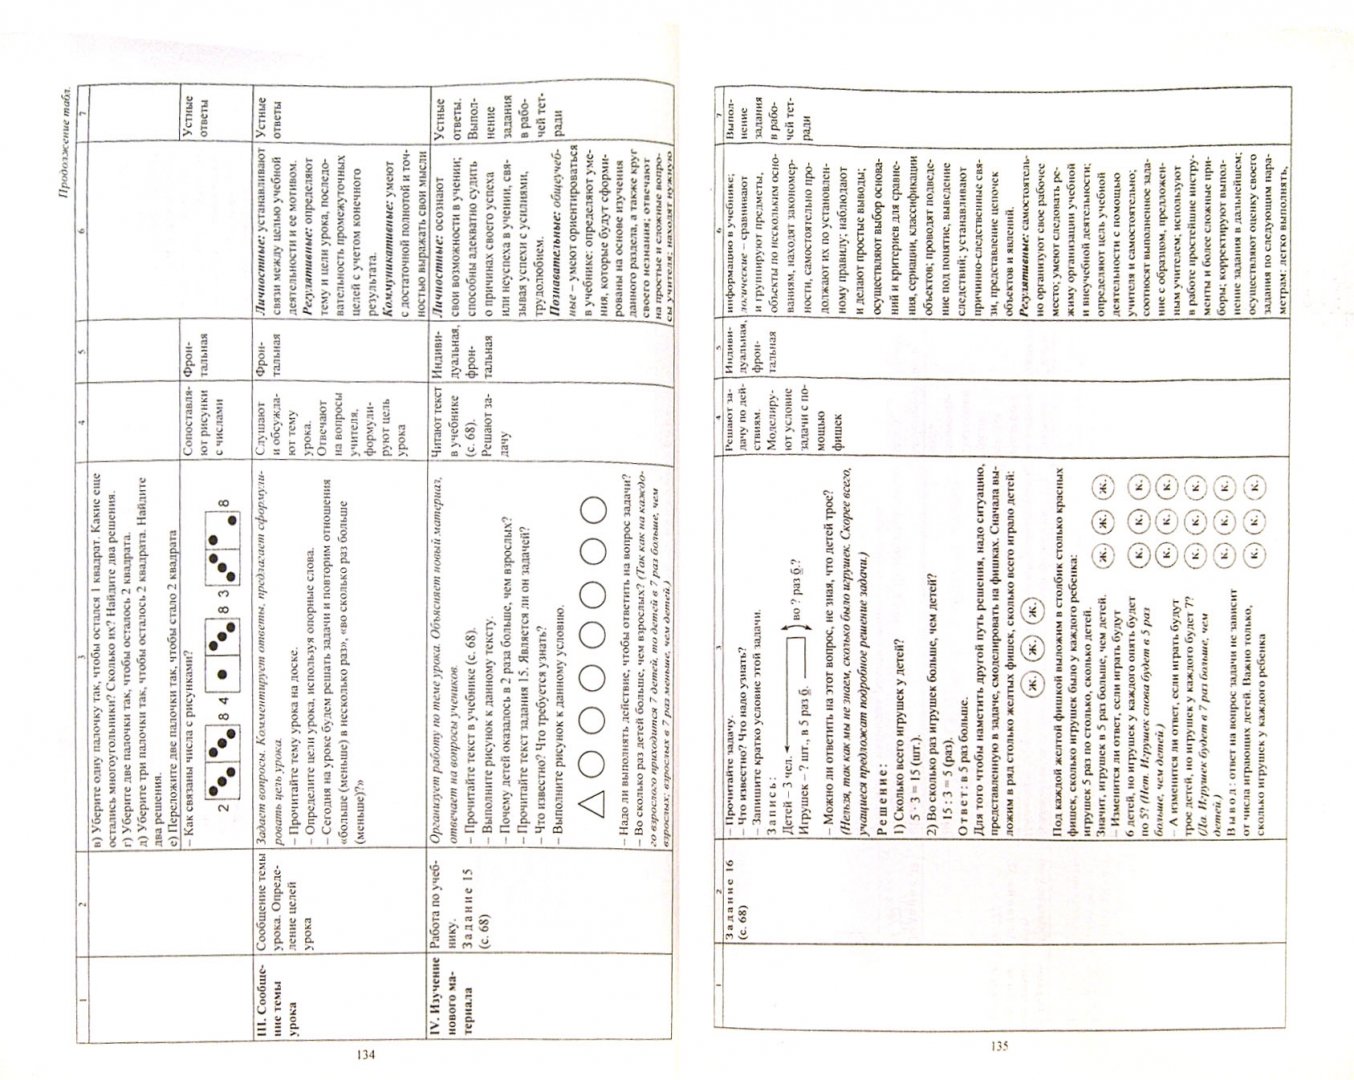 Продолжение табл.
1
2
3
4
5
6
7
в) Уберите одну палочку так, чтобы остался 1 квадрат. Какие еще
остались многоугольники? Сколько их? Найдите два решения.
г) Уберите две палочки так, чтобы осталось 2 квадрата.
д) Уберите три палочки так, чтобы осталось 2 квадрата. Найдите
два решения.
е) Переложите две палочки так, чтобы стало 2 квадрата
– Как связаны числа с рисунками?
2
8 4
8 3
8
Сопоставля-
ют рисунки
с числами
Фрон-
тальная
Устные
ответы
III. Сообще-
ние темы
урока
Сообщение темы
урока. Опреде-
ление целей
урока
Задает вопросы. Комментирует ответы, предлагает сформули-
ровать цель урока.
– Прочитайте тему урока на доске.
– Определите цели урока, используя опорные слова.
– Сегодня на уроке будем решать задачи и повторим отношения
«больше (меньше) в несколько раз», «во сколько раз больше
(меньше)?»
Слушают
и обсужда-
ют тему
урока.
Отвечают
на вопросы
учителя,
формули-
руют цель
урока
Фрон-
тальная
Личностные: устанавливают
связи между целью учебной
деятельности и ее мотивом.
Регулятивные: определяют
тему и цели урока, последо-
вательность промежуточных
целей с учетом конечного
результата.
Коммуникативные: умеют
с достаточной полнотой и точ-
ностью выражать свои мысли
Устные
ответы
IV. Изучение
нового ма-
териала
Работа по учеб-
нику.
Задание 15
(с. 68)
Организует работу по теме урока. Объясняет новый материал,
отвечает на вопросы учеников.
– Прочитайте текст в учебнике (с. 68).
– Выполните рисунок к данному тексту.
– Почему детей оказалось в 2 раза больше, чем взрослых?
– Прочитайте текст задания 15. Является ли он задачей?
– Что известно? Что требуется узнать?
– Выполните рисунок к данному условию.
– Надо ли выполнять действие, чтобы ответить на вопрос задачи?
– Во сколько раз детей больше, чем взрослых? (Так как на каждо-
го взрослого приходится 7 детей, то детей в 7 раз больше, чем
взрослых; взрослых в 7 раз меньше, чем детей.)
Читают текст
в учебнике
(с. 68).
Решают за-
дачу
Индиви-
дуальная,
фрон-
тальная
Личностные: осознают
свои возможности в учении;
способны адекватно судить
о причинах своего успеха
или неуспеха в учении, свя-
зывая успехи с усилиями,
трудолюбием.
Познавательные: общеучеб-
ные – умеют ориентироваться
в учебнике: определяют уме-
ния, которые будут сформи-
рованы на основе изучения
данного раздела, а также круг
своего незнания; отвечают
на простые и сложные вопро-
сы учителя; находят нужную
Устные
ответы.
Выпол-
нение
задания
в рабо-
чей тет-
ради
134
1
2
3
4
5
6
7
Задание 16
(с. 68)
– Прочитайте задачу.
– Что известно? Что надо узнать?
– Запишите кратко условие этой задачи.
Запись:
Детей – 3 чел.
Игрушек – ? шт., в 5 раз б.
во ? раз б.?
– Можно ли ответить на этот вопрос, не зная, что детей трое?
(Нельзя, так как мы не знаем, сколько было игрушек. Скорее всего,
учащиеся предложат подробное решение задачи.)
Решение:
1) Сколько всего игрушек у детей?
5 · 3 = 15 (шт.).
2) Во сколько раз игрушек больше, чем детей?
15 : 3 = 5 (раз).
Ответ: в 5 раз больше.
Для того чтобы наметить другой путь решения, надо ситуацию,
представленную в задаче, смоделировать на фишках. Сначала вы-
ложим в ряд столько желтых фишек, сколько всего играло детей:
Ж. Ж. Ж.
Под каждой желтой фишкой выложим в столбик столько красных
фишек, сколько игрушек было у каждого ребенка:
игрушек 5 раз по столько, сколько детей.
Значит, игрушек в 5 раз больше, чем детей.
– Изменится ли ответ, если играть будут
6 детей, но игрушек у каждого опять будет
по 5? (Нет. Игрушек снова будет в 5 раз
больше, чем детей.)
– А изменится ли ответ, если играть будут
трое детей, но игрушек у каждого будет 7?
(Да. Игрушек будет в 7 раз больше, чем
детей.)
Вывод: ответ на вопрос задачи не зависит
от числа играющих детей. Важно только,
сколько игрушек у каждого ребенка
Ж. Ж. Ж.
К. К. К.
К. К. К.
К. К. К.
К. К. К.
К. К. К.
Решают за-
дачу по дей-
ствиям.
Моделиру-
ют условие
задачи с по-
мощью
фишек
Индиви-
дуальная,
фрон-
тальная
информацию в учебнике;
логические – сравнивают
и группируют предметы,
объекты по нескольким осно-
ваниям, находят закономер-
ности, самостоятельно про-
должают их по установлен-
ному правилу; наблюдают
и делают простые выводы;
осуществляют выбор основа-
ний и критериев для сравне-
ния, сериации, классификации
объектов; проводят подведе-
ние под понятие, выведение
следствий; устанавливают
причинно-следственные свя-
зи, представление цепочек
объектов и явлений.
Регулятивные: самостоятель-
но организуют свое рабочее
место; умеют следовать ре-
жиму организации учебной
и внеучебной деятельности;
определяют цель учебной
деятельности с помощью
учителя и самостоятельно;
соотносят выполненное зада-
ние с образцом, предложен-
ным учителем; используют
в работе простейшие инстру-
менты и более сложные при-
боры; корректируют выпол-
нение задания в дальнейшем;
осуществляют оценку своего
задания по следующим пара-
метрам: легко выполнять,
Выпол-
нение
задания
в рабо-
чей тет-
ради
135